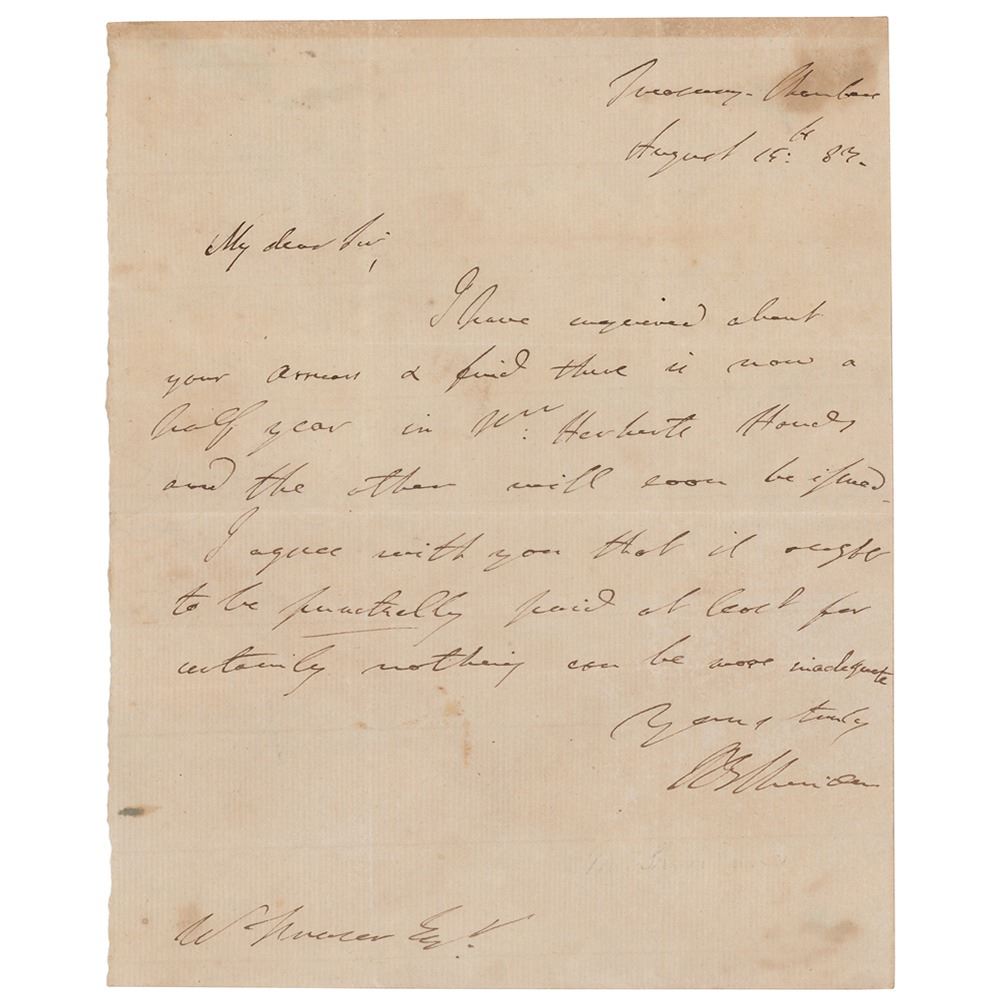 Treasury-Chamber
August 15:th 83.
My dear Sir,
I have enquired about
your arrears & find there is now a
half year in Herberts Hands
and the other will soon be issued.
I agree with you that it ought
to be punctually paid at least for
certainly nothing can be more inadequate
Yours truly
RBSheridan
Esqr.